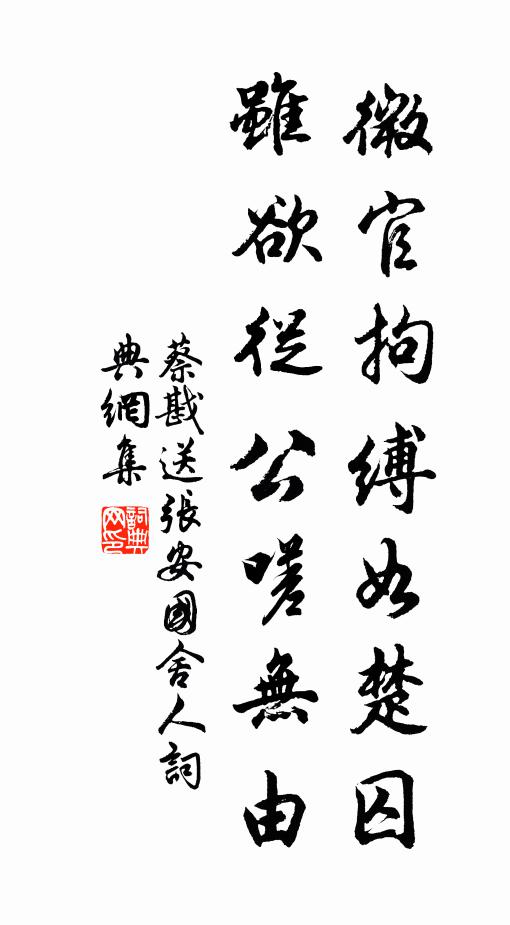 微官拘縛如楚囚
雖欲從公嗟無由
蔡戡送張安國舍人詞
典網集
詞典
网印